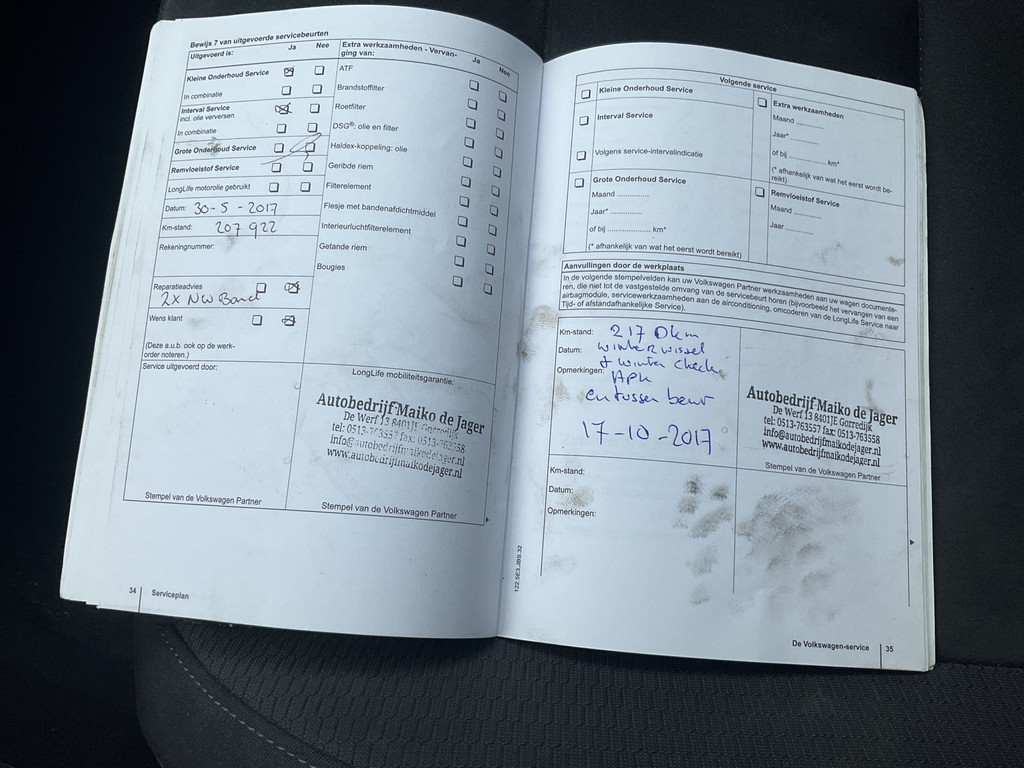 Bewijs 7 van uitgevoerde servicebeurten
Uitgevoerd is: Ja Nee
Kleine Onderhoud Service
In combinatie
Interval Service
incl. olie verversen
In combinatie
Grote Onderhoud Service
Remvloeistof Service
LongLife motorolie gebruikt
Datum: 30-5-2017
Km-stand: 207 922
Rekeningnummer:
Reparatieadvies
2x NW Band
Wens klant
(Deze a.u.b. ook op de werk-
order noteren.)
Service uitgevoerd door:
Stempel van de Volkswagen Partner
Extra werkzaamheden - Vervan-
ging van: Ja Nee
ATF
Brandstoffilter
Roetfilter
DSG®: olie en filter
Haldex-koppeling: olie
Geribde riem
Filterelement
Flesje met bandenafdichtmiddel
Interieurluchtfilterelement
Getande riem
Bougies
LongLife mobiliteitsgarantie:
Autobedrijf Maiko de Jager
De Werf 13 8401JE Gorredijk
tel: 0513-763557 fax: 0513-763558
info@autobedrijfmaikodejager.nl
www.autobedrijfmaikodejager.nl
Stempel van de Volkswagen Partner
34 Serviceplan
122.5E3.JBS.32
Volgende service
Kleine Onderhoud Service
Interval Service
Volgens service-intervalindicatie
Grote Onderhoud Service
Maand ............
Jaar* ............
of bij ................ km*
(* afhankelijk van wat het eerst wordt bereikt)
Extra werkzaamheden
Maand ..........
Jaar* ..........
of bij .............. km*
(* afhankelijk van wat het eerst wordt be-
reikt)
Remvloeistof Service
Maand ..........
Jaar ..........
Aanvullingen door de werkplaats
In de volgende stempelvelden kan uw Volkswagen Partner werkzaamheden aan uw wagen documente-
ren, die niet tot de vastgestelde omvang van de servicebeurt horen (bijvoorbeeld het vervangen van een
airbagmodule, servicewerkzaamheden aan de airconditioning, omcoderen van de LongLife Service naar
Tijd- of afstandafhankelijke Service).
Km-stand: 217 Dkm
Datum: winter wissel
+ winter check
Opmerkingen: APK
en tussen beurt
17-10-2017
Autobedrijf Maiko de Jager
De Werf 13 8401JE Gorredijk
tel: 0513-763557 fax: 0513-763558
info@autobedrijfmaikodejager.nl
www.autobedrijfmaikodejager.nl
Stempel van de Volkswagen Partner
Km-stand:
Datum:
Opmerkingen:
De Volkswagen-service 35